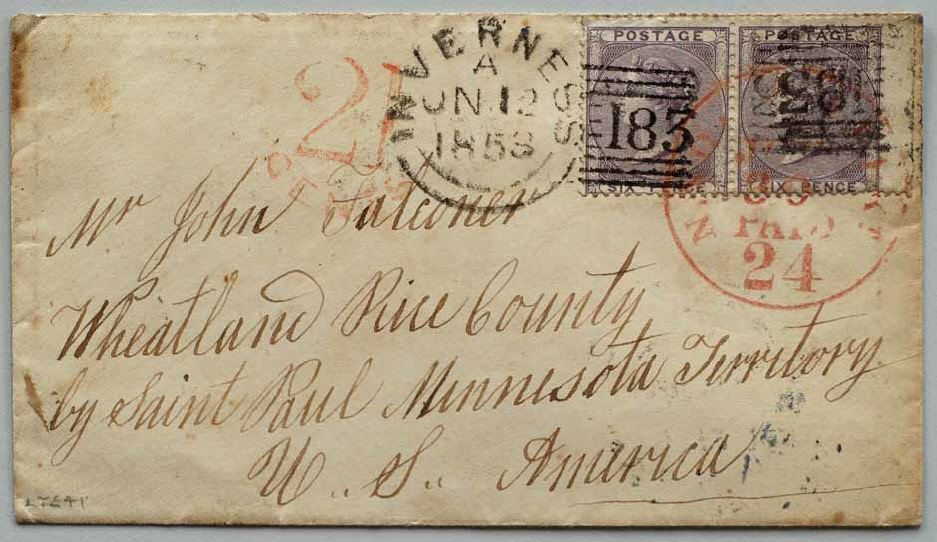 INVERNESS
A
JN.12
1858
POSTAGE
183
SIX PENCE
POSTAGE
183
SIX PENCE
21
PAID
24
Mr John Falconer
Wheatland Rice County
by Saint Paul Minnesota Territory
U.. S.. America